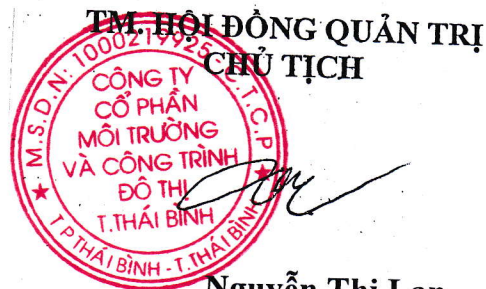 TM. HỘI ĐỒNG QUẢN TRỊ
CHỦ TỊCH
M.S.D.N: 1000219925-C.T.C.P
CÔNG TY
CỔ PHẦN
MÔI TRƯỜNG
VÀ CÔNG TRÌNH
ĐÔ THỊ
T.THÁI BÌNH
T.P THÁI BÌNH - T.THÁI BÌNH
Nguyễn Thị Lan